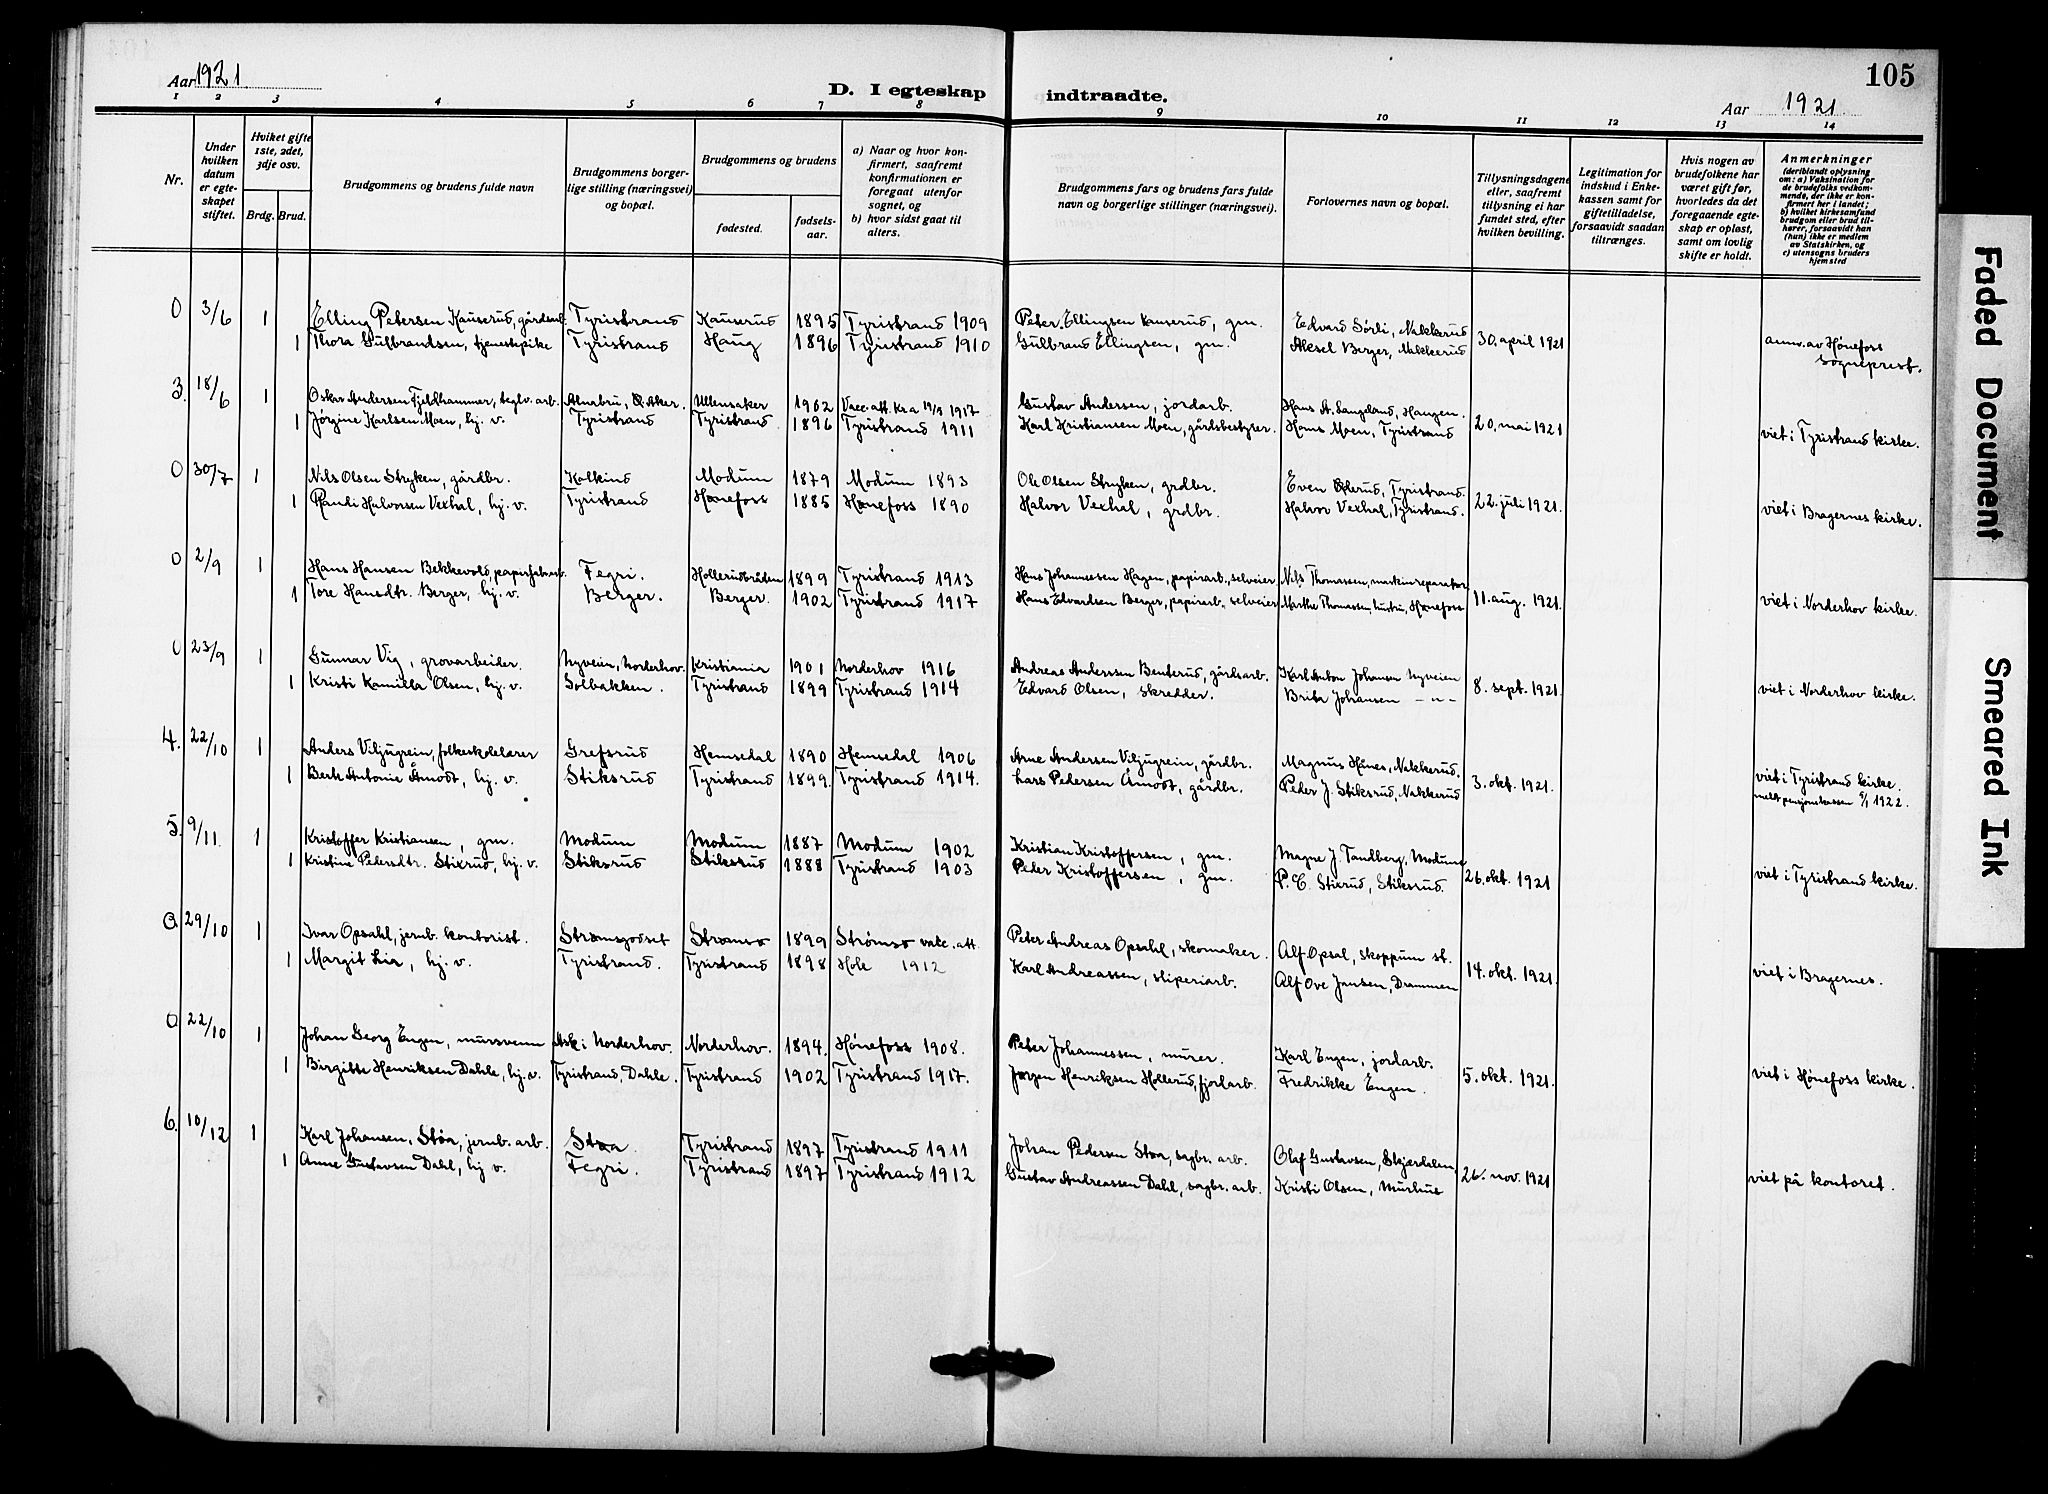 105
Aar 1921
D. I egteskap indtraadte.
Aar 1921
1 2 3 4 5 6 7 8 9 10 11 12 13 14
Nr.
Under hvilken datum er egteskapet stiftet.
Hviket gifte 1ste, 2det, 3dje osv.
Brdg. Brud.
Brudgommens og brudens fulde navn
Brudgommens borgerlige stilling (næringsvei) og bopæl.
Brudgommens og brudens
fødested.
fødselsaar.
a) Naar og hvor konfirmert, saafremt konfirmationen er foregaat utenfor sognet, og
b) hvor sidst gaat til alters.
Brudgommens fars og brudens fars fulde navn og borgerlige stillinger (næringsvei).
Forlovernes navn og bopæl.
Tillysningsdagene eller, saafremt tillysning ei har fundet sted, efter hvilken bevilling.
Legitimation for indskud i Enkekassen samt for giftetilladelse, forsaavidt saadan tiltrænges.
Hvis nogen av brudefolkene har været gift før, hvorledes da det foregaaende egteskap er opløst, samt om lovlig skifte er holdt.
Anmerkninger (deriblandt oplysning om: a) Vaksination for de brudefolks vedkommende, der ikke er konfirmert her i landet; b) hvilket kirkesamfund brudgom eller brud tilhører, forsaavidt han (hun) ikke er medlem av Statskirken, og c) utensogns bruders hjemsted
0 3/6 1 Elling Petersen Kauserud, gårdsarb. Tyristrand Kauserud 1895 Tyristrand 1909 Peter Ellingsen Kauserud, gm. Edvard Sørli, Nakkerud
1 Thora Gulbrandsen, tjenestepike Tyristrand Haug 1896 Tyristrand 1910 Gulbrand Ellingsen, gm. Aksel Berger, Nakkerud 30. april 1921 anm. av Hønefoss sogneprest.
3. 18/6 1 Oskar Andersen Fjeldhammer, teglv. arb. Alnabru, Ø. Aker. Ullensaker 1902 Vacc. att. Kr.a 19/9 1917 Gustav Andersen, jordarb. Hans A. Langeland, Haugen.
1 Jørgine Karlsen Moen, hj. v. Tyristrand Tyristrand 1896 Tyristrand 1911 Karl Kristiansen Moen, gårdsbestyrer. Hans Moen, Tyristrand 20. mai 1921 viet i Tyristrand kirke.
0 30/7 1 Nils Olsen Stryken, gårdbr. Kolkind Modum 1879 Modum 1893 Ole Olsen Stryken, grdbr. Even Ølerud, Tyristrand.
1 Randi Halvorsen Vexhal, hj. v. Tyristrand Hønefoss 1885 Hønefoss 1890 Halvor Vexhal, grdbr. Halvor Vexhal, Tyristrand. 22. juli 1921. viet i Bragernes kirke.
0 2/9 1 Hans Hansen Bekkevold, papirfabrarb. Fegri. Hollerudbråten 1899 Tyristrand 1913 Hans Johannessen Hagen, papirarb., selveier Nils Thomassen, maskinreparatør
1 Tore Hansdtr. Berger, hj. v. Berger. Berger. 1902 Tyristrand 1917 Hans Edvardsen Berger, papirarb., selveier Marthe Thomassen, hustru, Hønefoss 11. aug. 1921. viet i Norderhov kirke.
0 23/9 1 Gunnar Vig, grovarbeider. Nyveien, Norderhov. Kristiania 1901 Norderhov 1916 Andreas Anderssen Benterud, gårdsarb. Karl Anton Johansen Nyveien
1 Kristi Kamilla Olsen, hj. v. Solbakken. Tyristrand 1899 Tyristrand 1914 Edvard Olsen, skredder. Brita Johansen – " – 8. sept. 1921. viet i Norderhov kirke.
4. 22/10 1 Anders Viljugrein, folkeskolelærer Grefsrud Hemsedal 1890 Hemsedal 1906 Arne Andersen Viljugrein, gårdbr. Magnus Hånes, Nakkerud.
1 Berte Antonie Åmodt, hj. v. Stiksrud Tyristrand 1899. Tyristrand 1914. Lars Pedersen Åmodt, gårdbr. Peder J. Stiksrud, Nakkerud 3. okt. 1921. viet i Tyristrand kirke.
meldt pensjonskassen 6/1 1922.
5. 9/11. 1 Kristoffer Kristiansen, gm. Modum Modum 1887 Modum 1902 Kristian Kristoffersen, gm. Magne J. Tandberg, Modum
1 Kristine Pedersdtr. Stixrud, hj. v. Stiksrud Stiksrud 1888 Tyristrand 1903 Peder Kristoffersen, gm. P. E. Stixrud, Stiksrud. 26. okt. 1921 viet i Tyristrand kirke.
0. 29/10 1 Ivar Opsahl, jernb. kontorist. Strømsgodset Strømsø 1899 Strømsø vakc. att. Peter Andreas Opsahl, skomaker. Alf Opsal, Skoppum st.
1 Margit Lia, hj. v. Tyristrand. Tyristrand 1898 Hole 1912 Karl Andreassen, sliperiarb. Alf Ove Jansen, Drammen 14. okt. 1921. viet i Bragernes.
0. 22/10 1 Johan Georg Engen, mursvenn Ask i Norderhov. Norderhov. 1894. Hønefoss 1908. Peter Johannessen, murer. Karl Engen, jordarb.
1 Birgitte Henriksen Dahle, hj. v. Tyristrand, Dahle. Tyristrand 1902 Tyristrand 1917. Jørgen Henriksen Hollerud, fjordarb. Fredrikke Engen. 5. okt. 1921. viet i Hønefoss kirke.
6. 10/12 1 Karl Johansen Støa, jernb. arb. Støa Tyristrand 1897 Tyristrand 1911 Johan Pedersen Støa, sagbr. arb. Olaf Gustavsen, Skjærdalen
1 Anne Gustavsen Dahl, hj v. Fegri. Tyristrand 1897 Tyristrand 1912 Gustav Andreassen Dahl, sagbr. arb. Kristi Olsen, Murhus 26. nov. 1921 viet på kontoret.
Faded Document
Smeared Ink